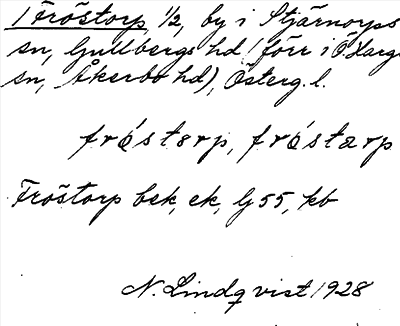 1 Fröstorp, 1/2, by i Stjärnorps
sn, Gullbergs hd (förr i Ö Harg
sn, Åkerbo hd), Österg. l.
fröstorp, fröstarp
Fröstorp bek, ek, lj 55, kb
N. Lindqvist 1928